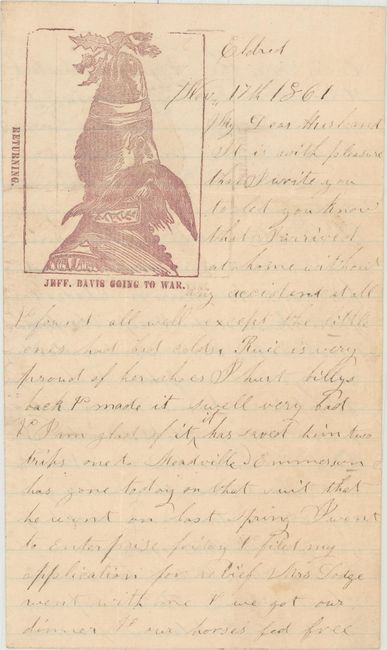 Eldred
Nov, 17th 1861
My Dear Husband
It is with pleasure
that I write you
to let you know
that I arrived
at home without
RETURNING.
JEFF. DAVIS GOING TO WAR.
any accident at all
& found all well except the little
ones had bad colds, Ruie is very
proud of her shoes I hurt billys
back & made it swell very bad
& I am glad of it, it has saved him two
trips one to Meadville Emmerson
has gone today on that suit that
he went on last spring I went
to Enterprise friday & filed my
application for relief Mrs Dodge
went with me & we got our
dinner & our horses fed free